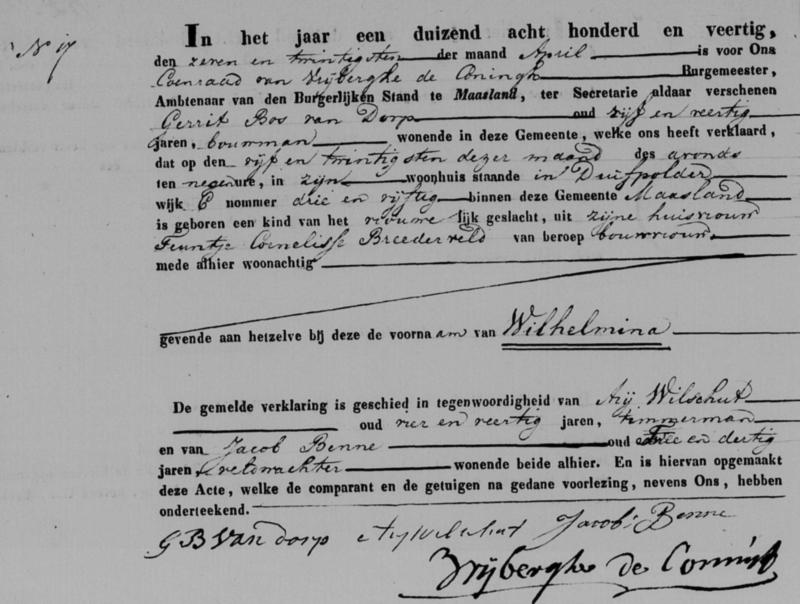 N 17
In het jaar een duizend acht honderd en veertig,
den zeven en twintigsten der maand April is voor Ons
Coenraad van Vrijberghe de Coningh Burgemeester,
Ambtenaar van den Burgerlijken Stand te Maasland, ter Secretarie aldaar verschenen
Gerrit Bos van Dorp oud vijf en veertig
jaren, bouwman wonende in deze Gemeente, welke ons heeft verklaard,
dat op den vijf en twintigsten dezer maand des avonds
ten negen ure, in zijn woonhuis staande in Duifpolder
wijk E nommer drie en vijftig binnen deze Gemeente Maasland
is geboren een kind van het vrouwelijk geslacht, uit zijne huisvrouw
Teuntje Cornelisse Breederveld van beroep bouwvrouw
mede alhier woonachtig
gevende aan hetzelve bij deze de voornaam van Wilhelmina
De gemelde verklaring is geschied in tegenwoordigheid van Arij Wilschut
oud vier en veertig jaren, timmerman
en van Jacob Benne oud en dertig
jaren veldwachter wonende beide alhier. En is hiervan opgemaakt
deze Acte, welke de comparant en de getuigen na gedane voorlezing, nevens Ons, hebben
onderteekend.
G B Van dorp Arij Wilschut Jacob Benne
Vrijberghe de Coningh